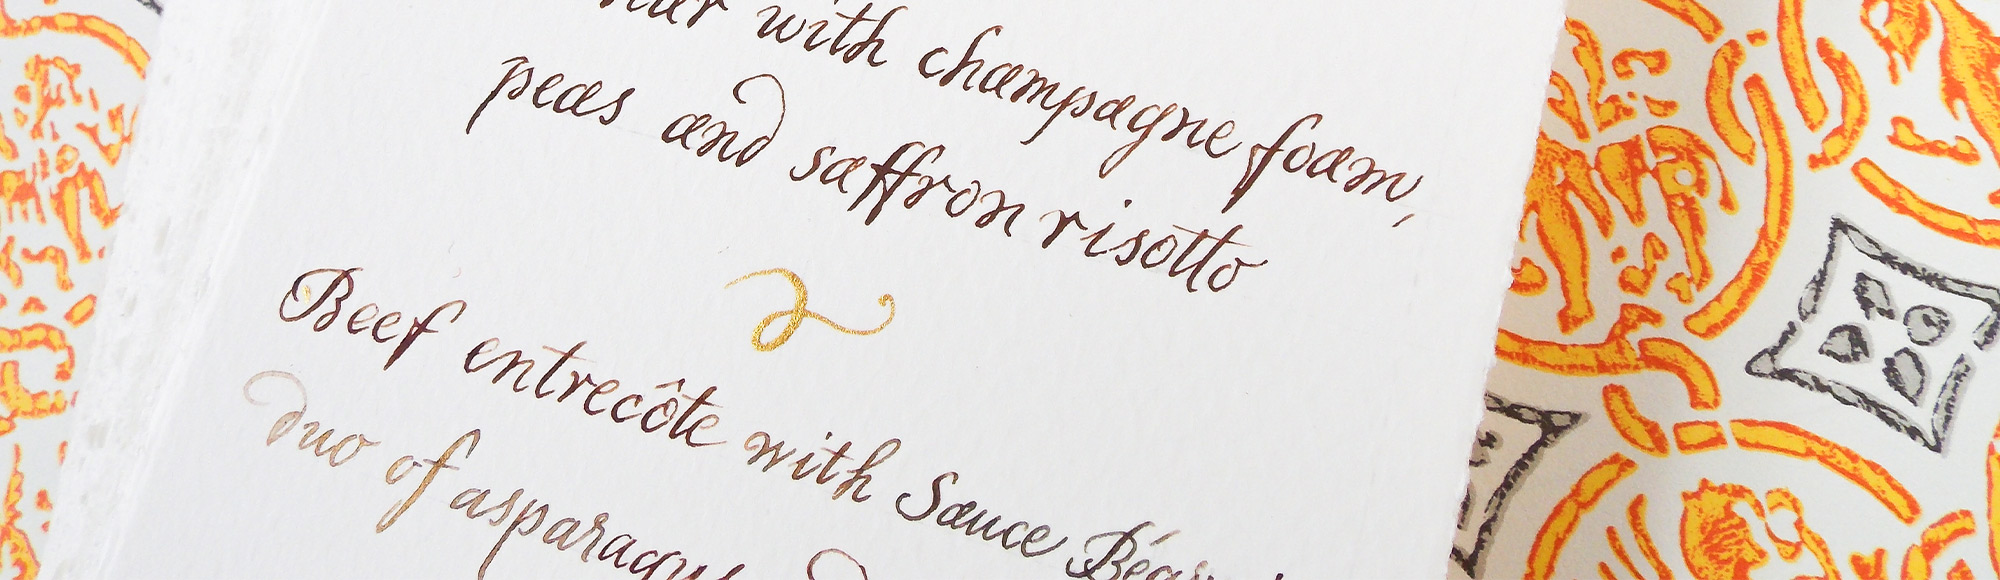 with champagne foam,
peas and saffron risotto
Beef entrecôte with Sauce
duo of asparagus